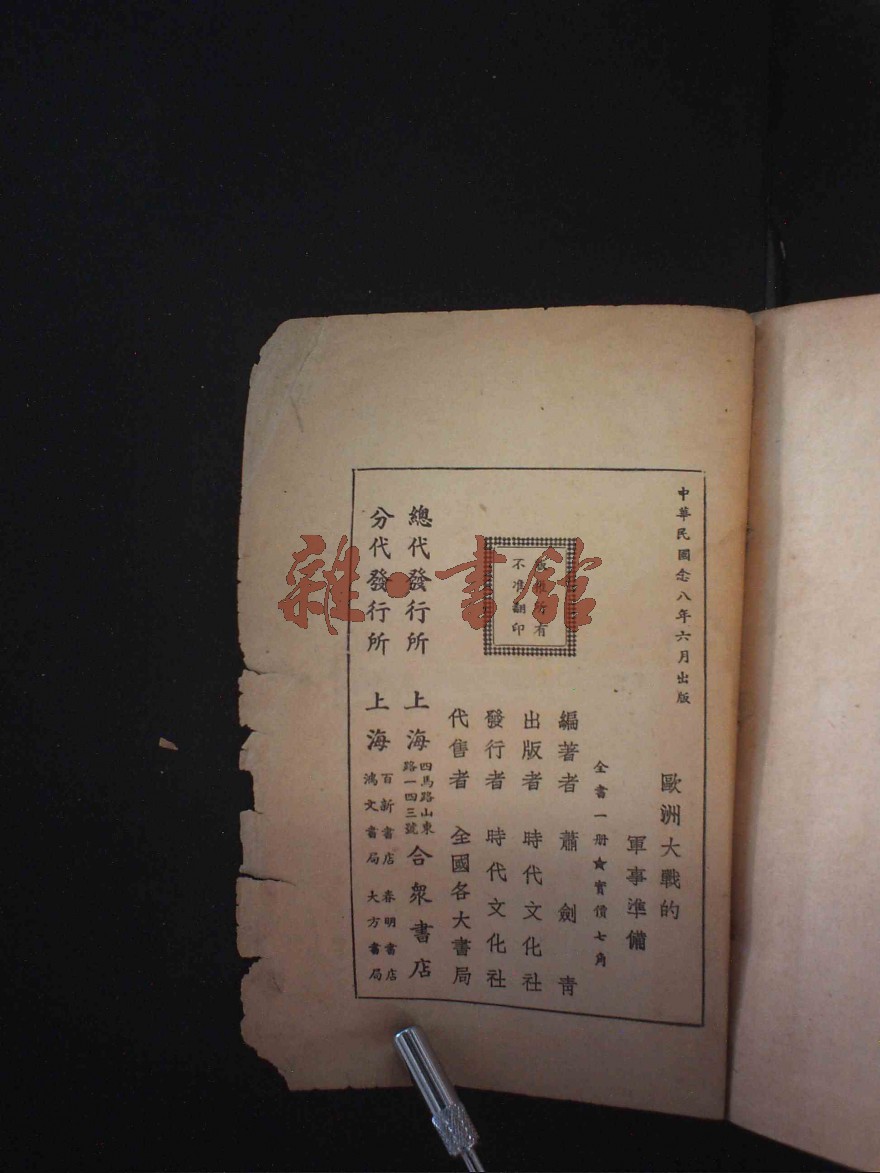 中華民國念八年六月出版
歐洲大戰的
軍事準備
全書一册★實價七角
編著者 蕭劍青
出版者 時代文化社
發行者 時代文化社
代售者 全國各大書局
版權所有
不准翻印
總代發行所 上海 四馬路山東路一四三號 合衆書店
分代發行所 上海 百新書店 春明書店
鴻文書局 大方書局
雜·書館